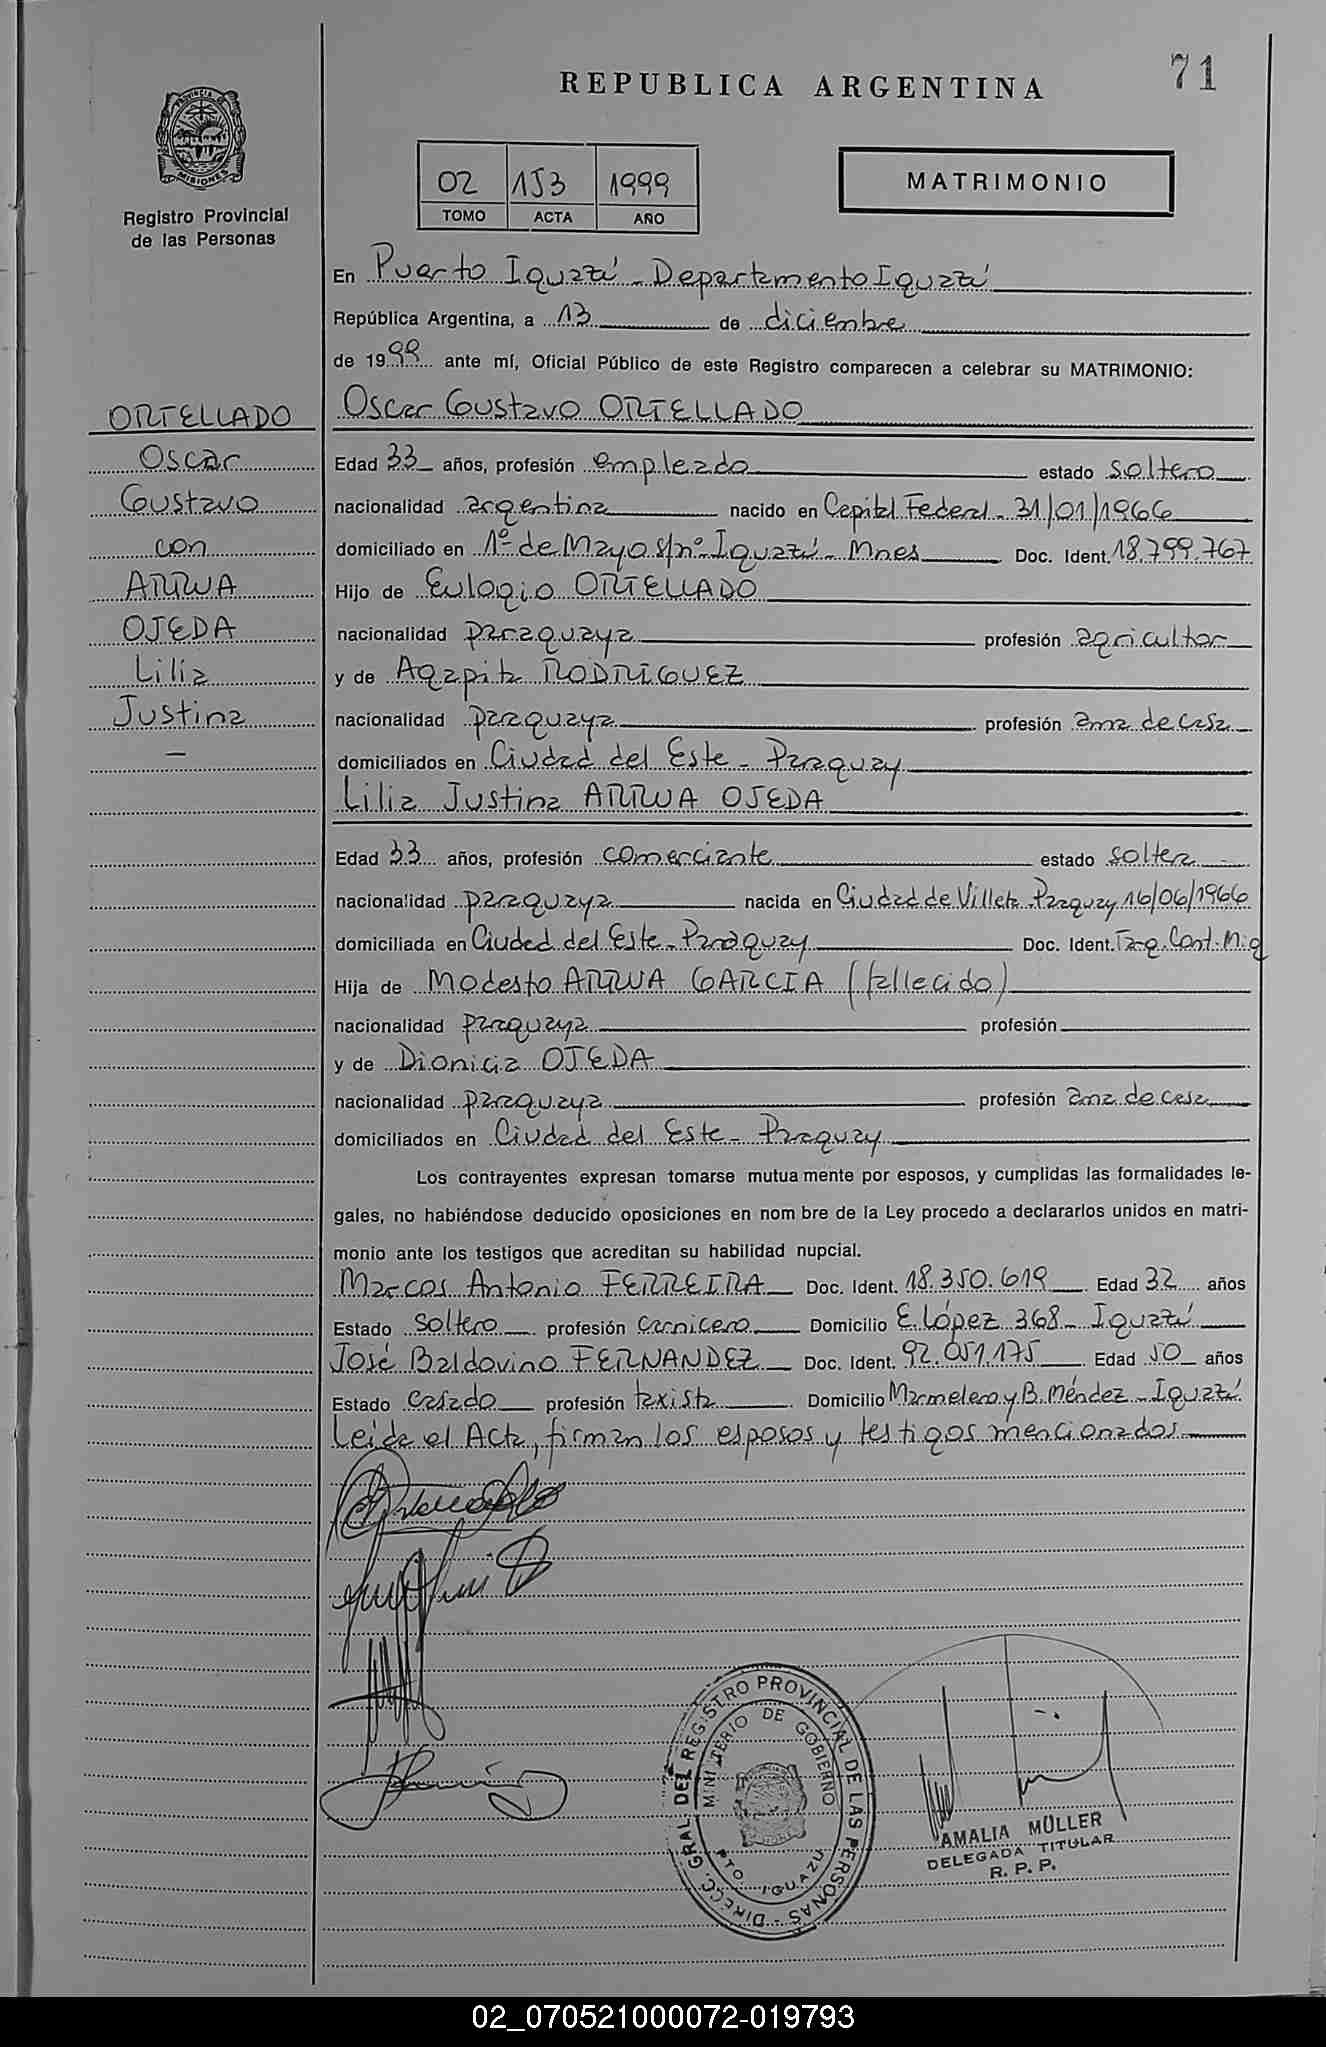 71
REPUBLICA ARGENTINA
PROVINCIA DE MISIONES
Registro Provincial
de las Personas
02 153 1999
TOMO ACTA AÑO
MATRIMONIO
En Puerto Iguazú - Departamento Iguazú
República Argentina, a 13 de diciembre
de 1999 ante mí, Oficial Público de este Registro comparecen a celebrar su MATRIMONIO:
ORTELLADO
Oscar
Gustavo
con
ARRUA
OJEDA
Lilia
Justina
-
Oscar Gustavo ORTELLADO
Edad 33 años, profesión empleado estado soltero
nacionalidad argentina nacido en Capital Federal - 31/01/1966
domiciliado en 1º de Mayo s/nº - Iguazú - Mnes Doc. Ident. 18.799.767
Hijo de Eulogio ORTELLADO
nacionalidad paraguaya profesión agricultor
y de Agapita RODRIGUEZ
nacionalidad paraguaya profesión ama de casa
domiciliados en Ciudad del Este - Paraguay
Lilia Justina ARRUA OJEDA
Edad 33 años, profesión comerciante estado soltera
nacionalidad paraguaya nacida en Ciudad de Villeta - Paraguay 16/06/1966
domiciliada en Ciudad del Este - Paraguay Doc. Ident. Tarj. Cont. Mig
Hija de Modesto ARRUA GARCIA (fallecido)
nacionalidad paraguaya profesión
y de Dionicia OJEDA
nacionalidad paraguaya profesión ama de casa
domiciliados en Ciudad del Este - Paraguay
Los contrayentes expresan tomarse mutua mente por esposos, y cumplidas las formalidades le-
gales, no habiéndose deducido oposiciones en nom bre de la Ley procedo a declararlos unidos en matri-
monio ante los testigos que acreditan su habilidad nupcial.
Marcos Antonio FERREIRA Doc. Ident. 18.350.619 Edad 32 años
Estado soltero profesión carnicero Domicilio E. López 368 - Iguazú
José Baldovino FERNANDEZ Doc. Ident. 92.051.175 Edad 50 años
Estado casado profesión taxista Domicilio Marmelero y B. Méndez - Iguazú
Leída el Acta, firman los esposos y testigos mencionados
DIRECC. GRAL. DEL REGISTRO PROVINCIAL DE LAS PERSONAS -
MINISTERIO DE GOBIERNO
PTO. IGUAZU
AMALIA MÜLLER
DELEGADA TITULAR
R. P. P.
02_070521000072-019793